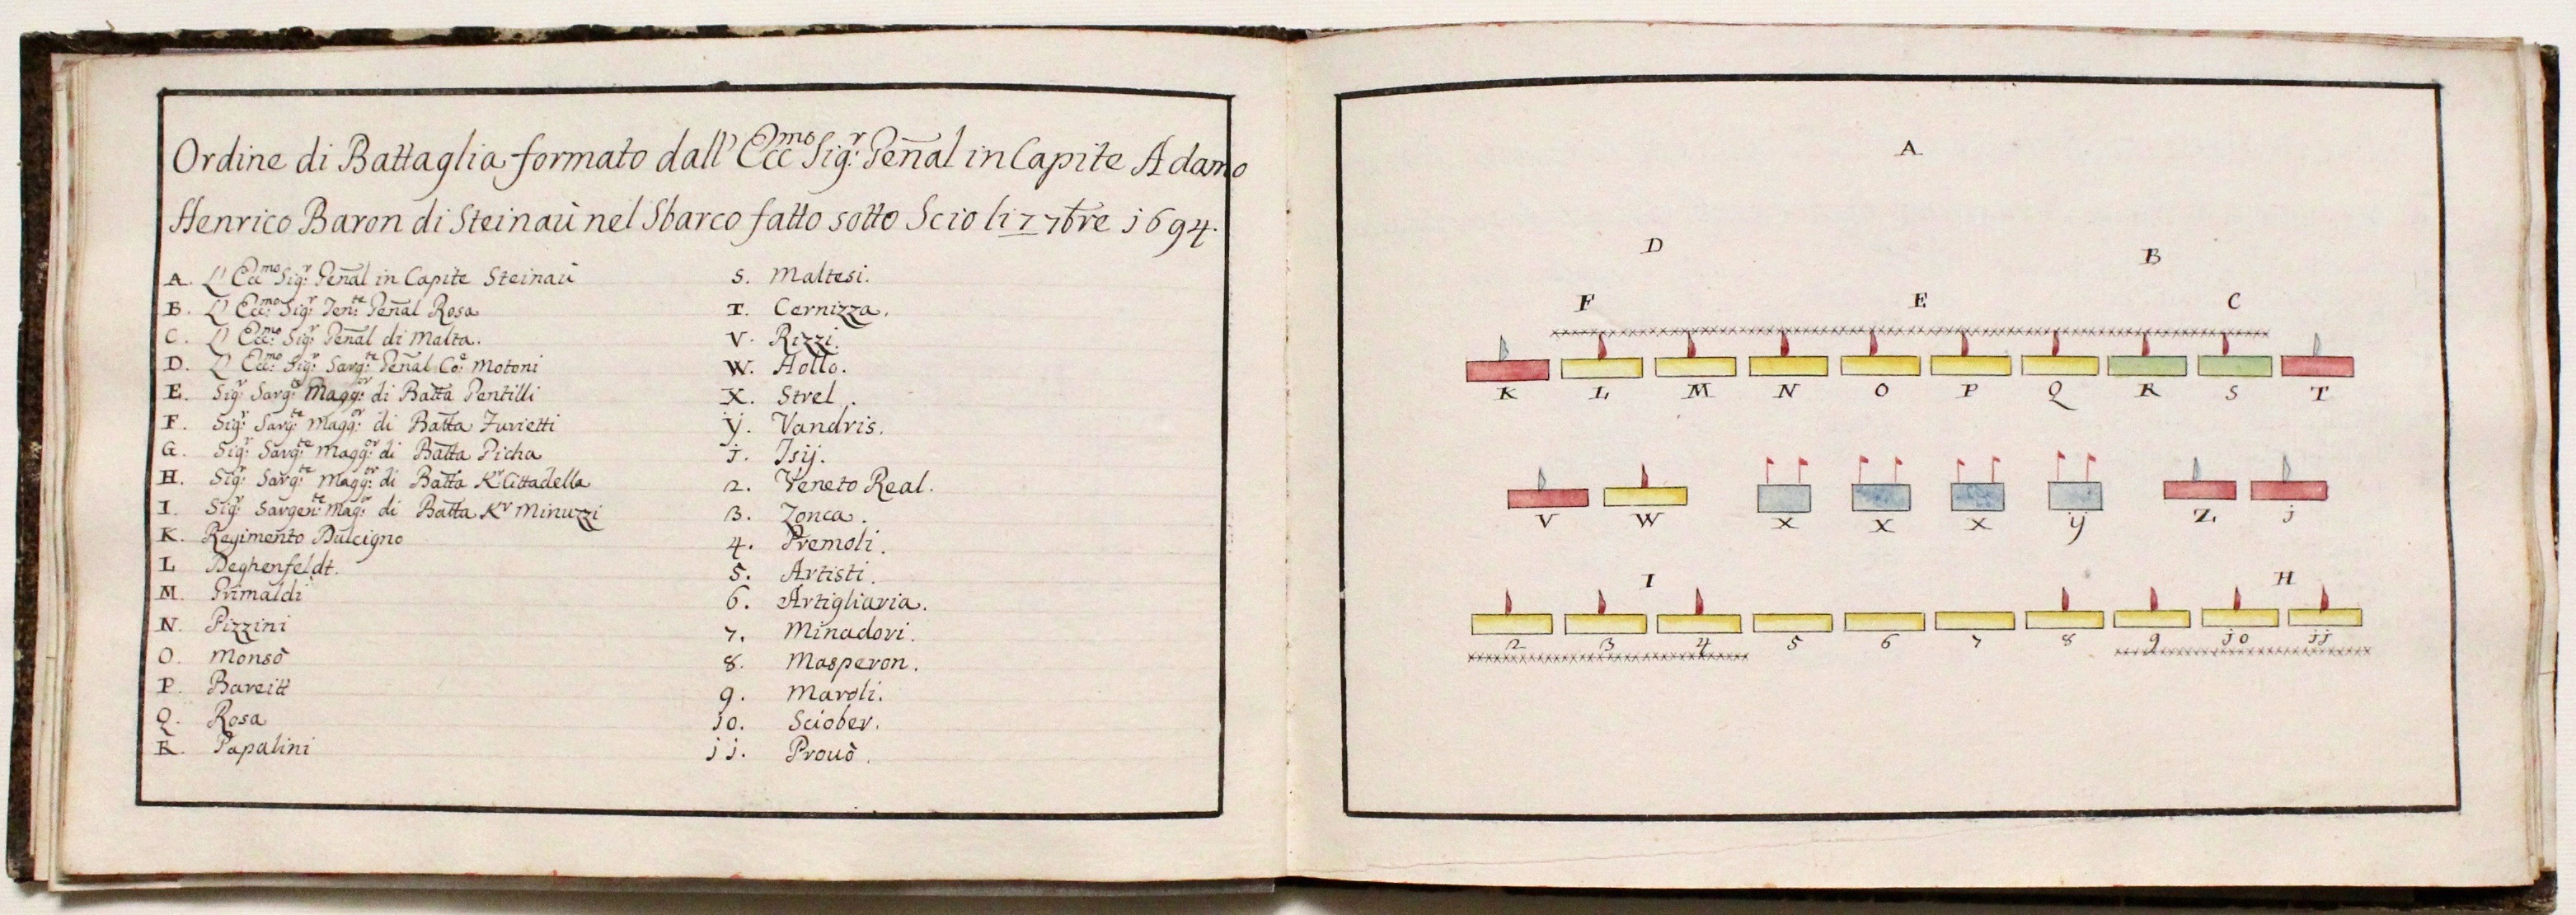 Ordine di Battaglia formato dall' Ecc.mo Sig.r Gen̄al in Capite Adamo
Henrico Baron di Steinaù nel Sbarco fatto sotto Scio li 7 7bre j694.
A. L' Ecc.mo Sig.r Gen̄al in Capite Steinaù
B. L' Ecc.mo Sig.r Ten.te Gen̄al Rosa
C. L' Ecc.mo Sig.r Gen̄al di Malta.
D. L' Ecc.mo Sig.r Sarg.te Gen̄al Co: Motoni
E. Sig.r Sarg.te Magg.or di Batta Pentilli
F. Sig.r Sarg.te Magg.or di Batta Furietti
G. Sig.r Sarg.te Magg.or di Batta Picha
H. Sig.r Sarg.te Magg.or di Batta K.r Cittadella
I. Sig.r Sargen.te Mag.r di Batta K.r Minuzzi
K. Regimento Dulcigno
L Deghenfeldt.
M. Grimaldi
N. Pizzini
O. Monsò
P. Bareitt
Q. Rosa
R. Papalini
S. Maltesi.
T. Cernizza.
V. Rizzi.
W. Hollo.
X. Strel.
ÿ. Vandris.
j. Isij.
2. Veneto Real.
3. Zonca.
4. Premoli.
5. Artisti.
6. Artigliaria.
7. Minadori.
8. Masperon.
9. Maroli.
jo. Sciober.
jj. Prouò.
A
D B
F E C
K L M N O P Q R S T
V W X X X ÿ Z j
I H
2 3 4 5 6 7 8 9 jo jj